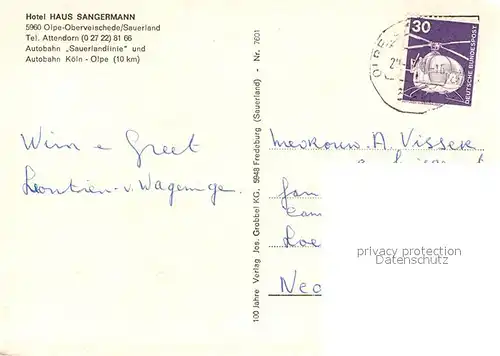 Hotel HAUS SANGERMANN
5960 Olpe-Oberveischede/Sauerland
Tel. Attendorn (0 27 22) 81 66
Autobahn „Sauerlandlinie" und
Autobahn Köln - Olpe (10 km)
30
DEUTSCHE BUNDESPOST
OLPE
100 Jahre Verlag Jos. Grobbel KG. 5948 Fredeburg (Sauerland) - Nr. 7601
Wim e Greet
Leontien v. Wagenge
Mevrouw. A. Visser
Jan
Loe
Ned
privacy protection
Datenschutz